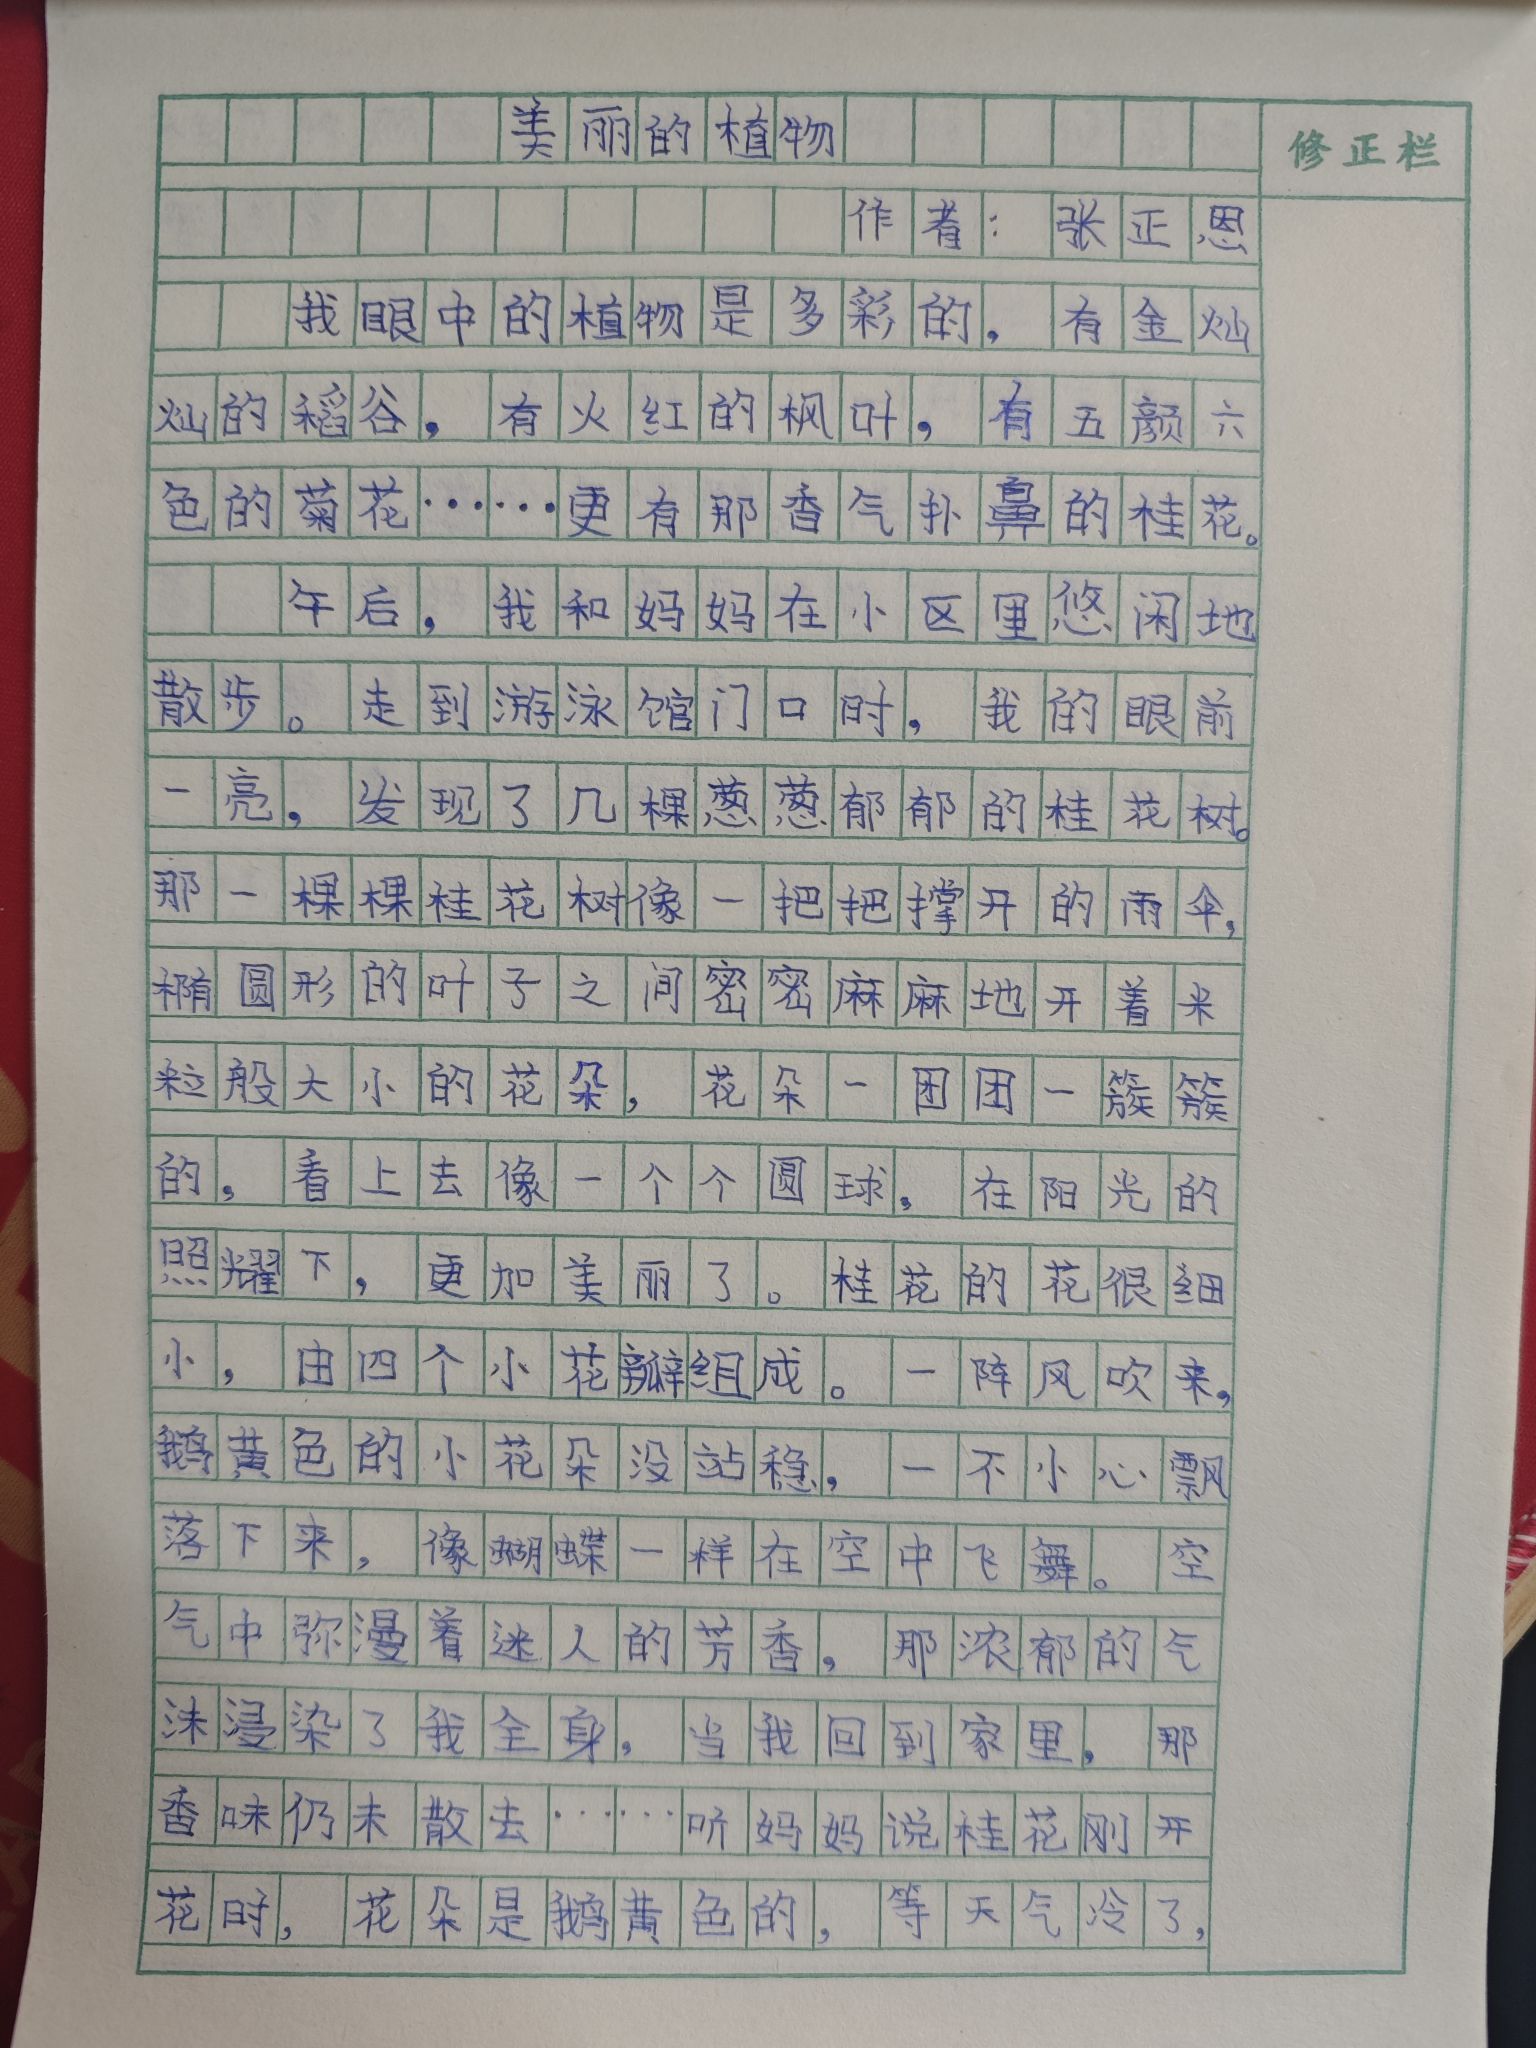 美丽的植物
修正栏
作者：张正恩
我眼中的植物是多彩的，有金灿
灿的稻谷，有火红的枫叶，有五颜六
色的菊花……更有那香气扑鼻的桂花。
午后，我和妈妈在小区里悠闲地
散步。走到游泳馆门口时，我的眼前
一亮，发现了几棵葱葱郁郁的桂花树。
那一棵棵桂花树像一把把撑开的雨伞，
椭圆形的叶子之间密密麻麻地开着米
粒般大小的花朵，花朵一团团一簇簇
的，看上去像一个个圆球，在阳光的
照耀下，更加美丽了。桂花的花很细
小，由四个小花瓣组成。一阵风吹来，
鹅黄色的小花朵没站稳，一不小心飘
落下来，像蝴蝶一样在空中飞舞。空
气中弥漫着迷人的芳香，那浓郁的气
沬浸染了我全身，当我回到家里，那
香味仍未散去……听妈妈说桂花刚开
花时，花朵是鹅黄色的，等天气冷了，